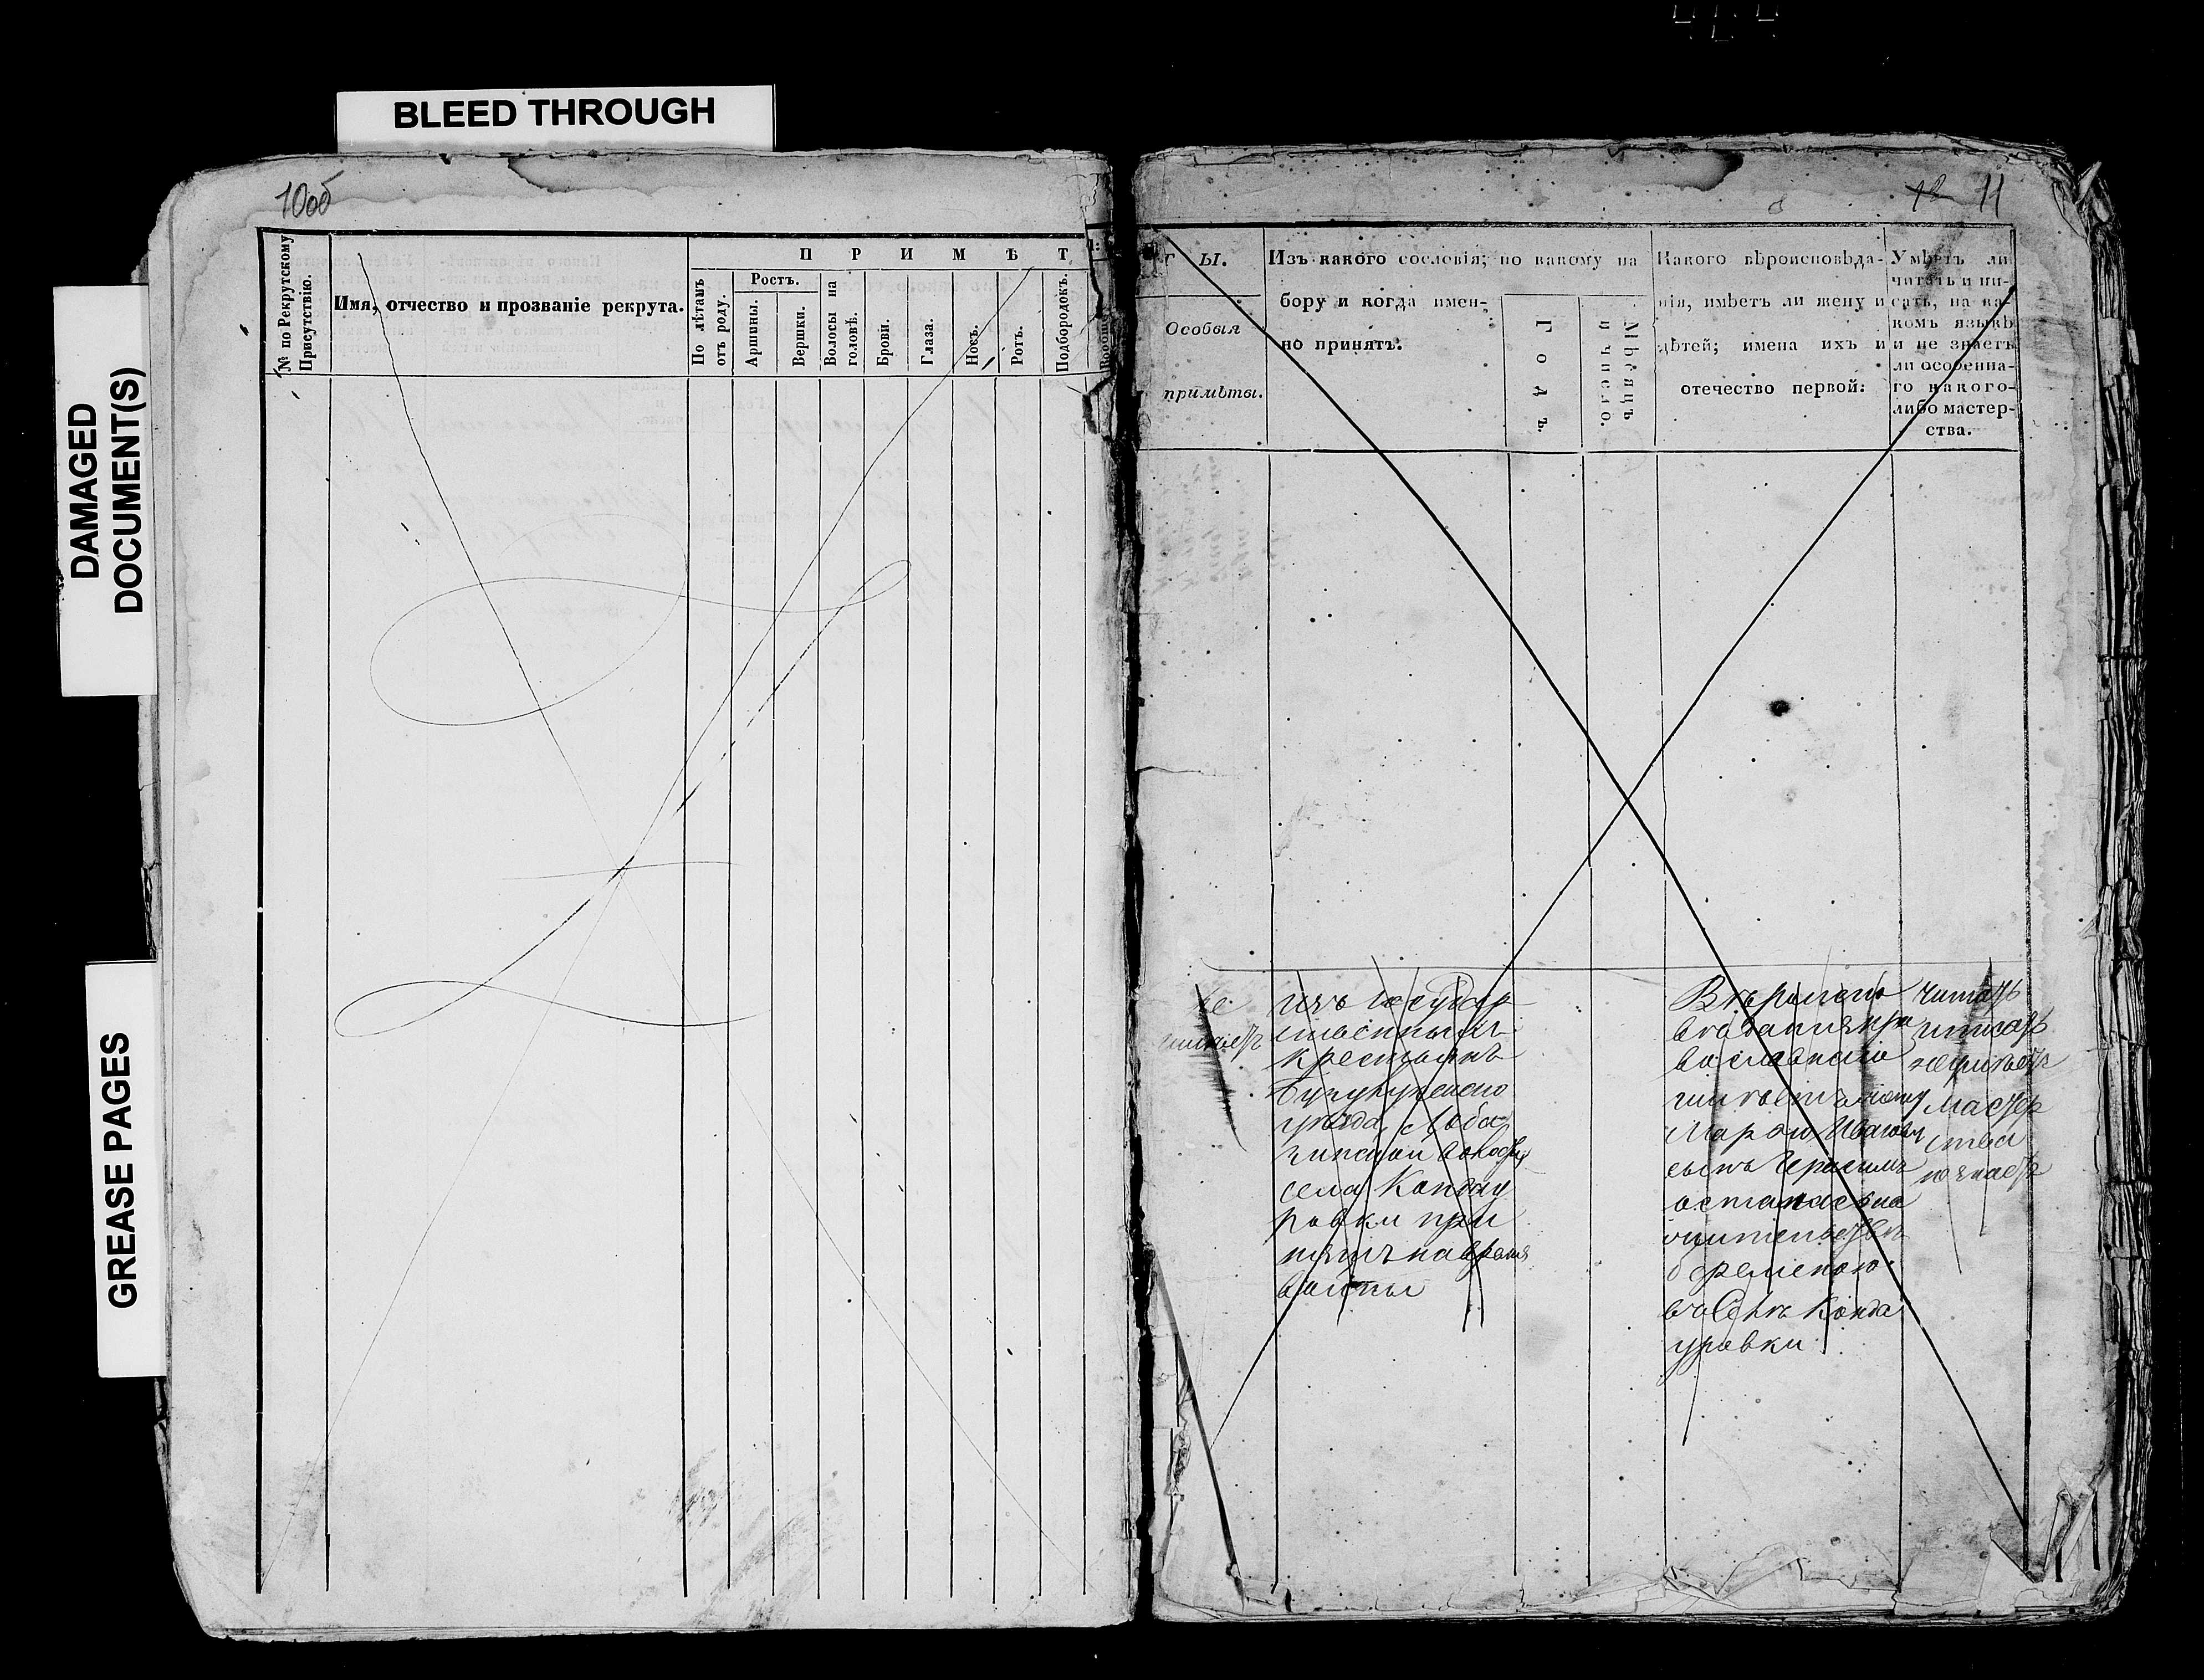 BLEED THROUGH
DAMAGED
DOCUMENT(S)
GREASE PAGES
10об
№ по Рекрутскому
Присутствію.
Имя, отчество и прозваніе рекрута.
П Р И М Ѣ Т
По лѣтамъ
отъ роду.
Ростъ.
Аршины.
Вершки.
Волосы на
головѣ.
Брови.
Глаза.
Носъ.
Ротъ.
Подбородокъ.
12 11
Ы.
Особыя
примѣты.
Изъ какого сословія; по какому на
бору и когда имен-
но принятъ.
Годъ.
Мѣсяцъ
и число.
Какого вѣроисповѣда-
нія, имѣетъ ли жену и
дѣтей; имена ихъ и
отечество первой:
Умѣетъ ли
читать и пи-
сать, на ка-
комъ языкѣ
и не знаетъ
ли особенна-
го какого-
либо мастер-
ства.
не
имѣетъ
изъ Государ
ственныхъ
крестьянъ
уѣзда
села Кандау
ровки при
нятъ на время
войны
православнаго
Марью Иванову
сынъ Герасимъ
беременою
Конда
уровки
читать
писать
неумѣетъ
Мастер
ства